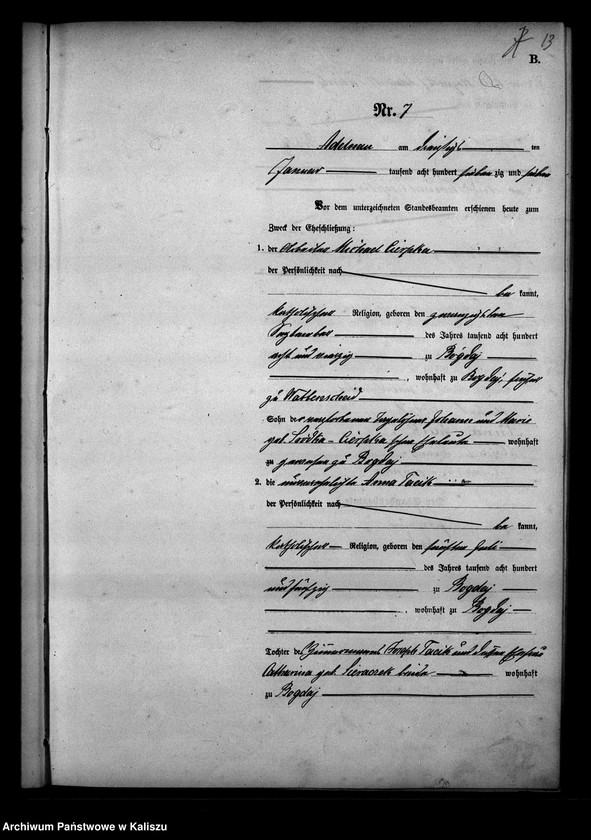 13
B.
Nr. 7
Adelnau am dreißigsten
Januar tausend acht hundert siebenzig und sieben
Vor dem unterzeichneten Standesbeamten erschienen heute zum
Zweck der Eheschließung:
1. der Arbeiter Michael Cierpka
der Persönlichkeit nach
bekannt,
katholischer Religion, geboren den
September des Jahres tausend acht hundert
acht und vierzig zu Bogdaj
, wohnhaft zu Bogdaj, früher
zu Wattenscheid
Sohn der verstorbenen Johann und Marie
geb. Cierpka'schen Eheleute wohnhaft
zu gewesen zu Bogdaj
2. die unverehelichte Anna Tacik
der Persönlichkeit nach
bekannt,
katholischer Religion, geboren den fünften Juli
des Jahres tausend acht hundert
und fünfzig zu Bogdaj
, wohnhaft zu Bogdaj
Tochter des Joseph Tacik und dessen Ehefrau
Catharina geb. Sieraczek beide wohnhaft
zu Bogdaj
Archiwum Państwowe w Kaliszu